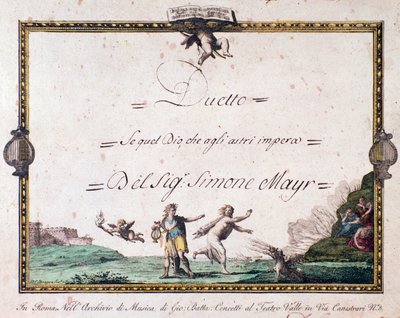 = Duetto =
= Se quel Dio, che agli astri impera =
= Del Sig.r Simone Mayr =
In Roma Nell' Archivio di Musica, di Gio: Batta: Cencetti al Teatro Valle in Via Canestrari N.º 6.